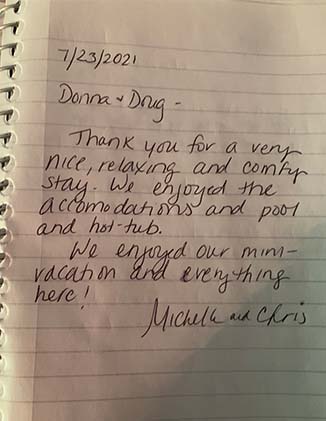 7/23/2021
Donna + Doug -
Thank you for a very
nice, relaxing and comfy
stay. We enjoyed the
accomodations and pool
and hot-tub.
We enjoyed our mini-
vacation and everything
here!
Michelle and Chris